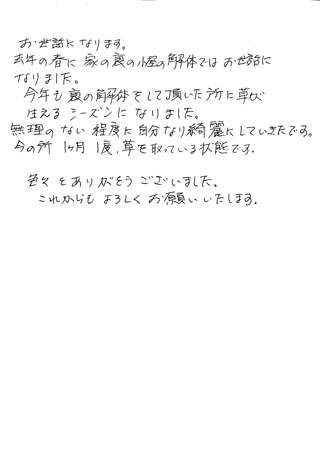 お世話になります。
去年の春に 家の裏の小屋の解体では お世話に
なりました。
今年も 裏の解体をして頂いた所に草が
生える シーズンに なりました。
無理のない 程度に 自分なり綺麗にしていきたです。
今の所 1ヶ月 1度、草を取っている状態です。
色々とありがとうございました。
これからも よろしく お願いいたします。